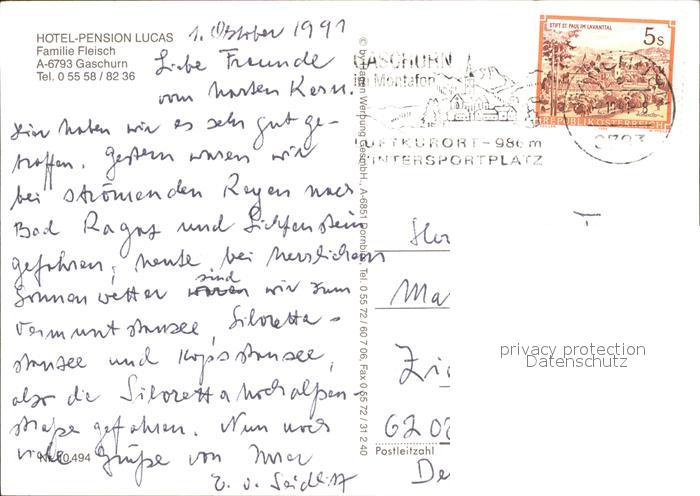 HOTEL-PENSION LUCAS
Familie Fleisch
A-6793 Gaschurn
Tel. 0 55 58 / 82 36
1. Oktober 1991
Liebe Freunde
vom harten Kern.
Hier haben wir es sehr gut ge-
troffen. Gestern waren wir
bei strömenden Regen nach
Bad Ragaz und Lichtenstein
gefahren, heute bei herrlichem
Sonnenwetter sind wir zum
Vermuntstausee, Silvretta-
stausee und Kopsstausee,
also die Silvrettahochalpen-
straße gefahren. Nun noch
viele Grüße von
E. v. Seidlitz
Nr. 10.494
A-6851 Dornbirn, Tel. 0 55 72 / 60 7 06, Fax 0 55 72 / 31 2 40
GASCHURN
im Montafon
LUFTKURORT - 986 m
WINTERSPORTPLATZ
STIFT ST. PAUL IM LAVANTTAL
5s
REPUBLIK ÖSTERREICH
6793
Her
Ma
620
Postleitzahl
De
privacy protection
Datenschutz